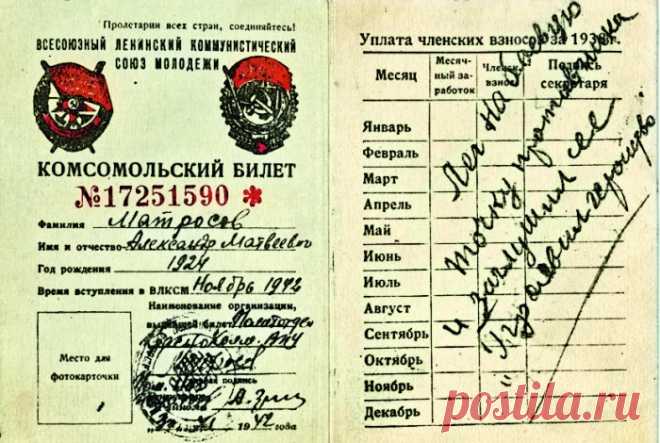 Пролетарии всех стран, соединяйтесь!
ВСЕСОЮЗНЫЙ ЛЕНИНСКИЙ КОММУНИСТИЧЕСКИЙ
СОЮЗ МОЛОДЕЖИ
КОМСОМОЛЬСКИЙ БИЛЕТ
№17251590 *
Фамилия Матросов
Имя и отчество Александр Матвеевич
Год рождения 1924
Время вступления в ВЛКСМ Ноябрь 1942
Наименование организации,
выдавшей билет
Место для
фотокарточки
подпись
1942 года
Уплата членских взносов за 193 г.
Месяц
Месяч-
ный за-
работок
Членск.
взнос
Подпись
секретаря
Январь
Февраль
Март
Апрель
Май
Июнь
Июль
Август
Сентябрь
Октябрь
Ноябрь
Декабрь
Лег на огневую
точку противника
и заглушил ее
Проявил геройство
postila.ru